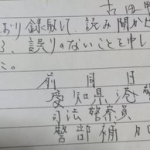 おり録取して、読み聞かせ
る、誤りのないことを申し
た。
前同日
愛知県港警
司法警察員
警部補